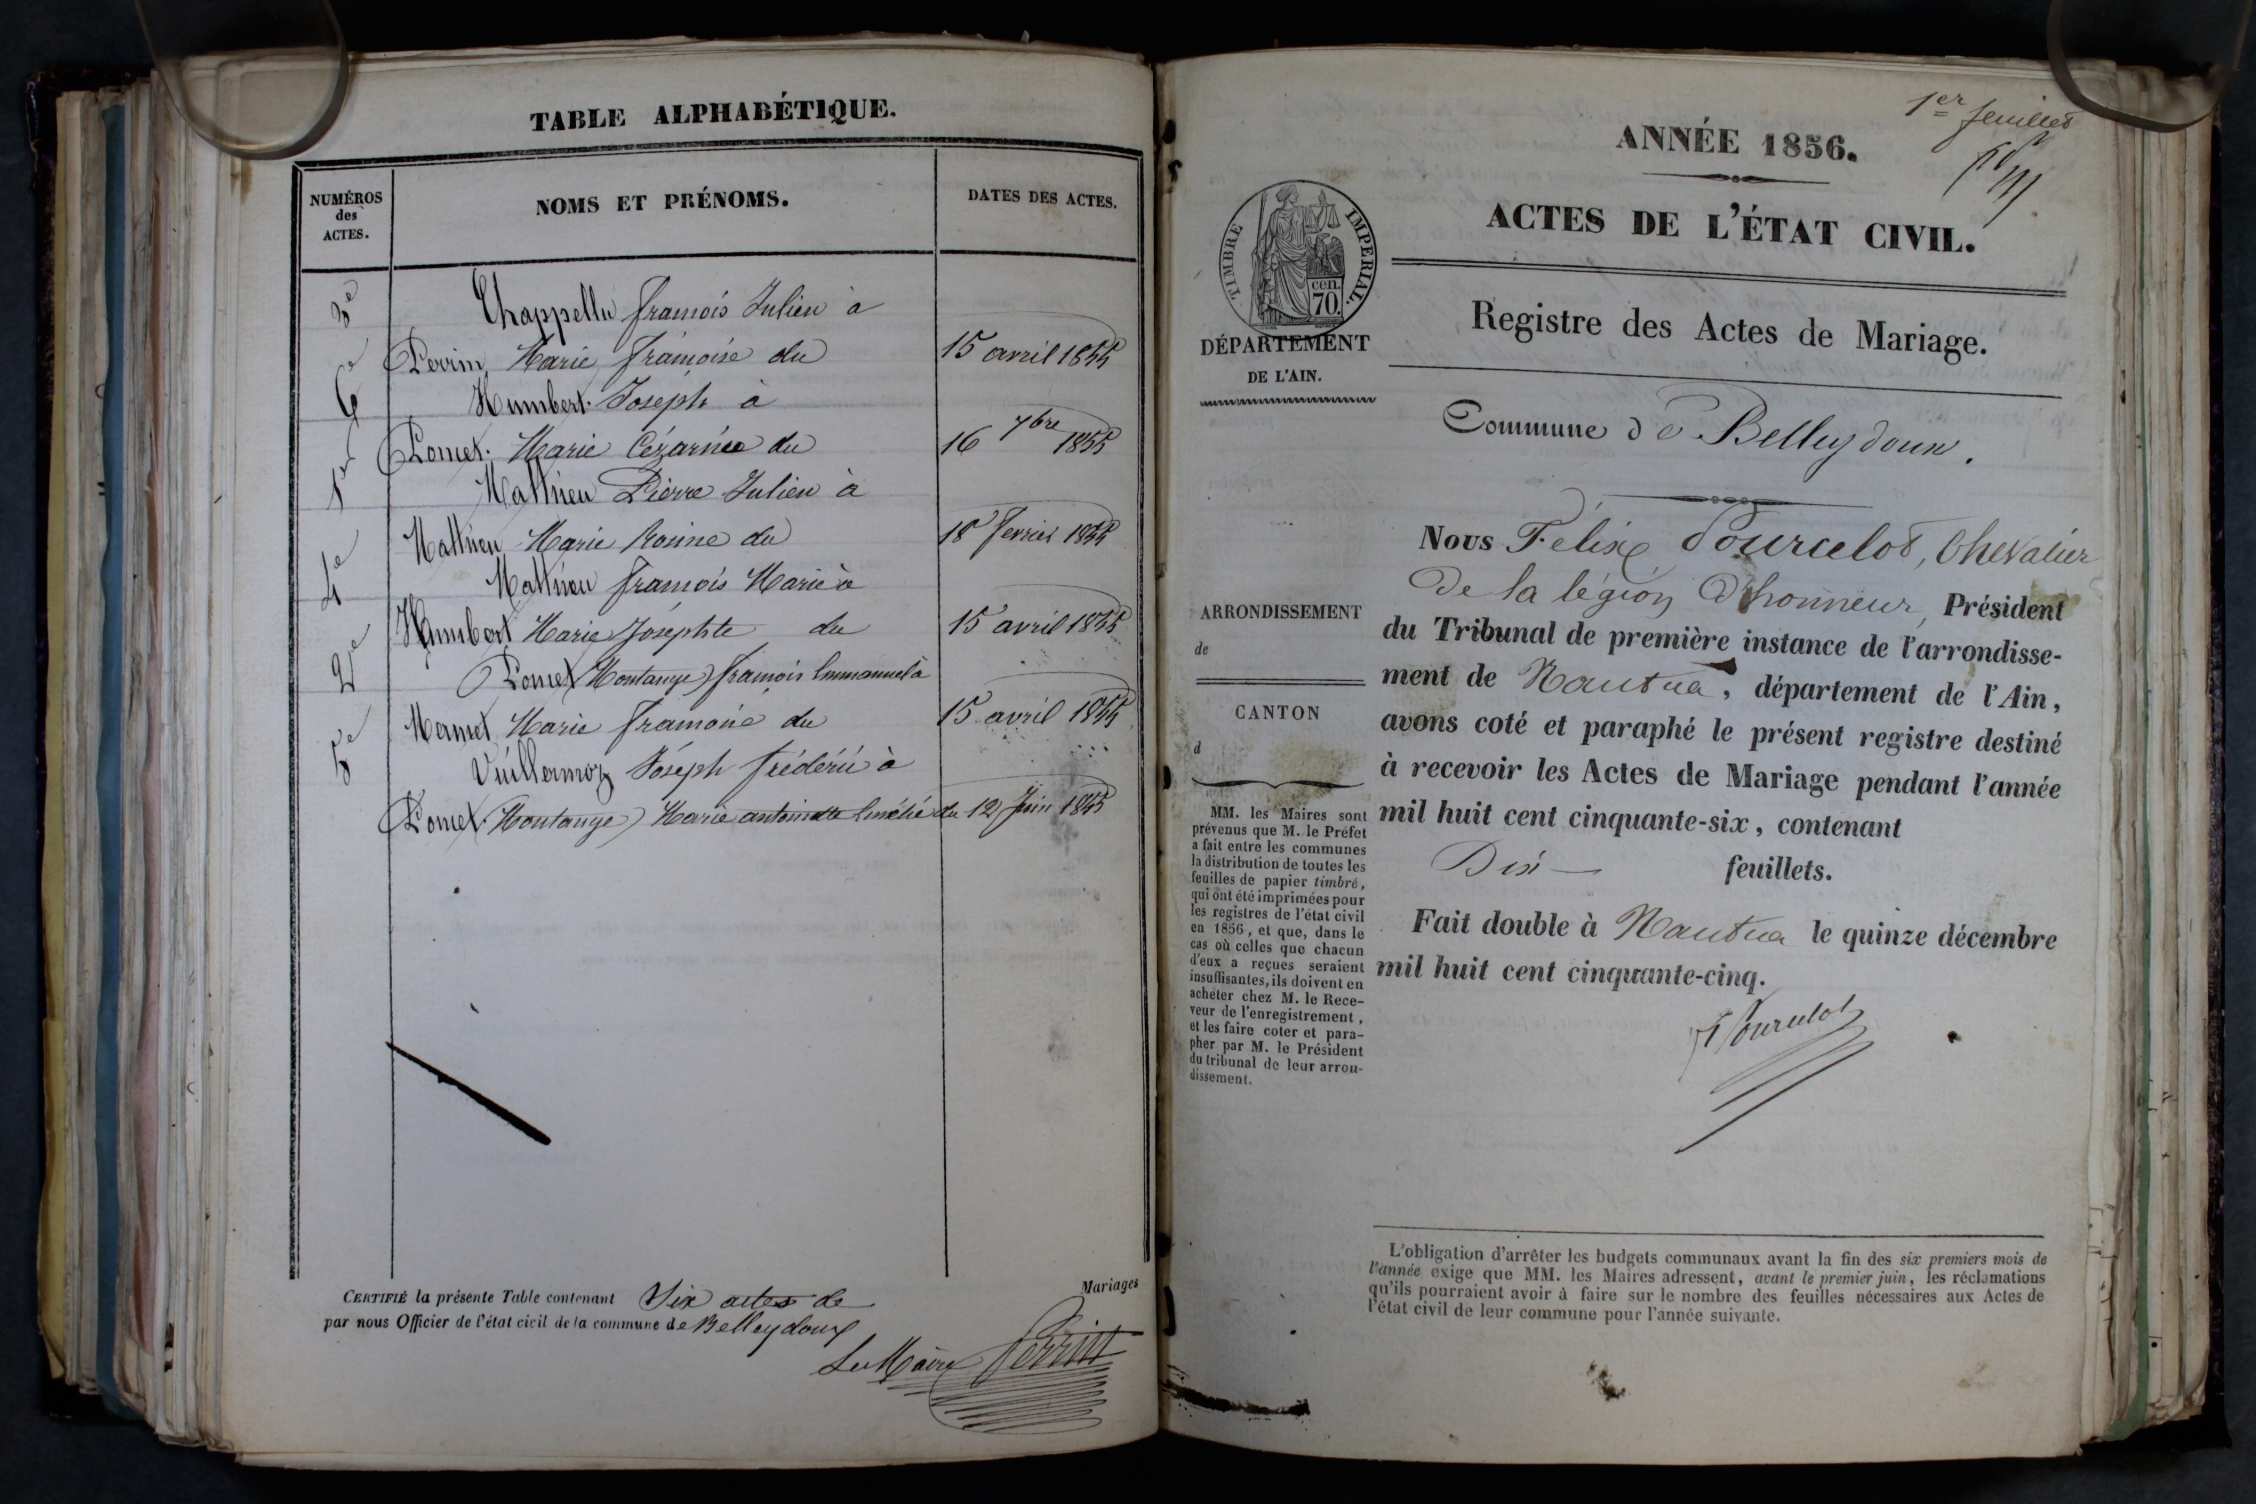 TABLE ALPHABÉTIQUE.
NUMÉROS
des
ACTES.
NOMS ET PRÉNOMS.
DATES DES ACTES.
3e
Chappellu François Julien à
Perrin Marie Françoise du
15 avril 1855
6e
Humbert Joseph à
Poncet Marie Cézarnée du
16 7bre 1855
1er
Mathieu Pierre Julien à
Mathieu Marie Rosine du
18 fevrier 1855
4e
Mathieu François Marie à
Humbert Marie Josephte du
15 avril 1855
2e
Poncet (Montange) François Emmanuel à
Mermet Marie Françoise du
15 avril 1855
5e
Vuillermoz Joseph Frédéric à
Poncet (Montange) Marie antoinette Améliée du
12 Juin 1855
Mariages
CERTIFIÉ la présente Table contenant Six actes de
par nous Officier de l'état civil de la commune de Belleydoux
Le Maire Perrin
1er feuillet
ANNÉE 1856.
ACTES DE L'ÉTAT CIVIL.
TIMBRE IMPÉRIAL.
cen.
70.
DÉPARTEMENT
DE L'AIN.
Registre des Actes de Mariage.
Commune de Belleydoux.
ARRONDISSEMENT
de
CANTON
d
MM. les Maires sont
prévenus que M. le Préfet
a fait entre les communes
la distribution de toutes les
feuilles de papier timbré,
qui ont été imprimées pour
les registres de l'état civil
en 1856, et que, dans le
cas où celles que chacun
d'eux a reçues seraient
insuffisantes, ils doivent en
acheter chez M. le Rece-
veur de l'enregistrement,
et les faire coter et para-
pher par M. le Président
du tribunal de leur arron-
dissement.
NOUS Félix Pourcelot, Chevalier
De la légion D'honneur, Président
du Tribunal de première instance de l'arrondisse-
ment de Nantua, département de l'Ain,
avons coté et paraphé le présent registre destiné
à recevoir les Actes de Mariage pendant l'année
mil huit cent cinquante-six, contenant
Dix feuillets.
Fait double à Nantua le quinze décembre
mil huit cent cinquante-cinq.
F Pourcelot
L'obligation d'arrêter les budgets communaux avant la fin des six premiers mois de
l'année exige que MM. les Maires adressent, avant le premier juin, les réclamations
qu'ils pourraient avoir à faire sur le nombre des feuilles nécessaires aux Actes de
l'état civil de leur commune pour l'année suivante.